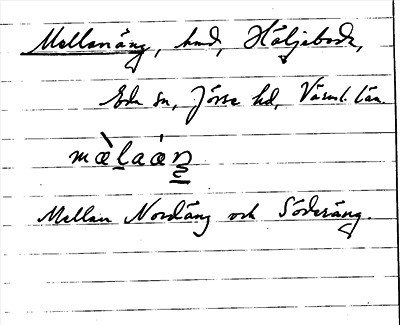 Mellanäng, hmd, Häljeboda,
Eda sn, Jösse hd, Värml. län.
mæ̀l̠aáŋ̳
Mellan Nordäng och Söderäng.